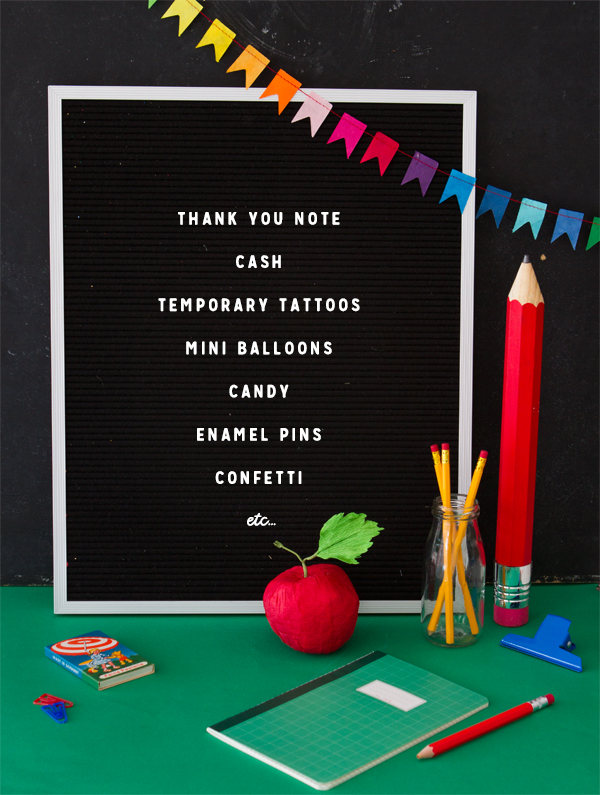 THANK YOU NOTE
CASH
TEMPORARY TATTOOS
MINI BALLOONS
CANDY
ENAMEL PINS
CONFETTI
etc...